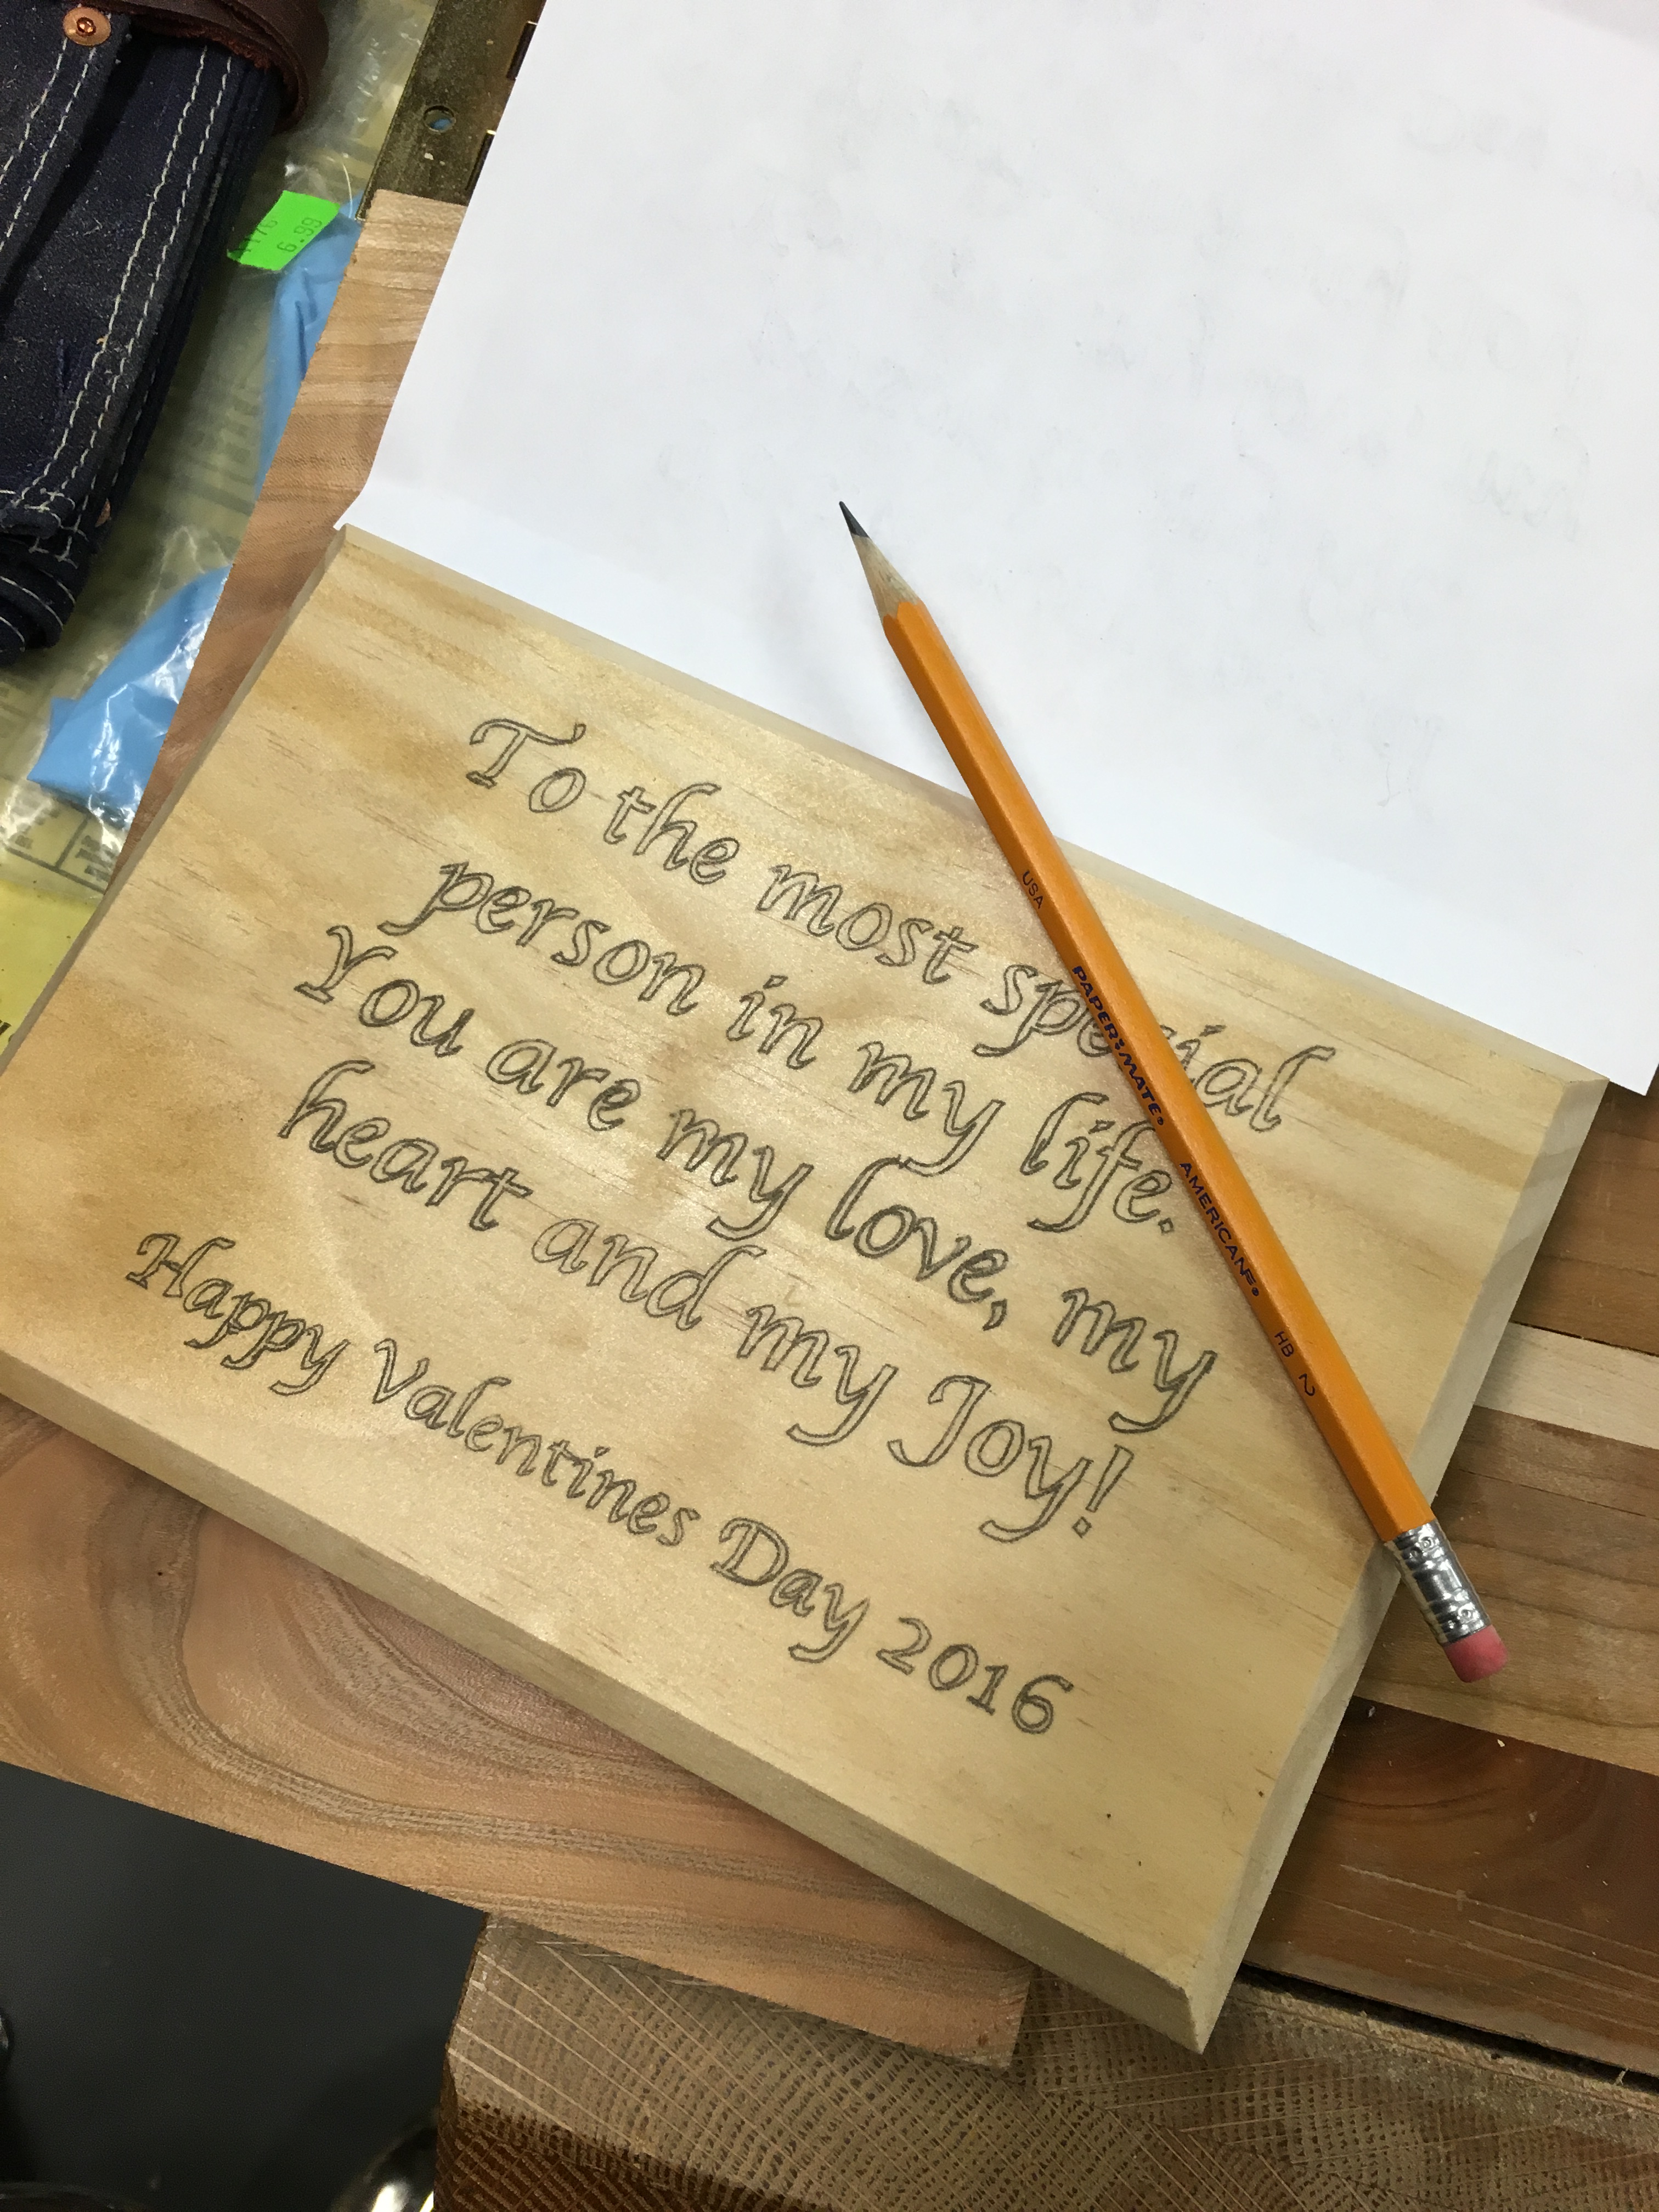 To the most special
person in my life.
You are my love, my
heart and my Joy!
Happy Valentines Day 2016
USA PAPER:MATE® AMERICAN® HB 2
1176
6.99